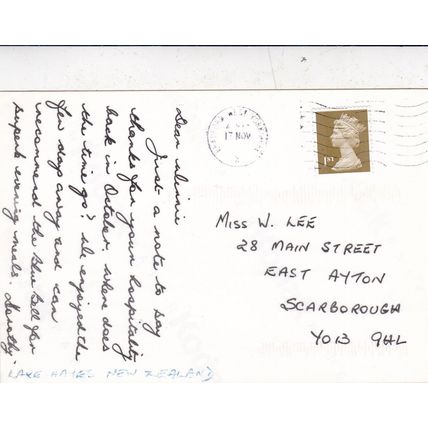 Dear Winnie
Just a note to say
thanks for your hospitality
back in October. Where does
the time go? We enjoyed the
few days away and can
recommend the Blue Bell for
superb evening meals. Dorothy.
LAKE HAYES NEW ZEALAND
17 NOV
1ST
MISS W. LEE
28 MAIN STREET
EAST AYTON
SCARBOROUGH
YO13 9HL